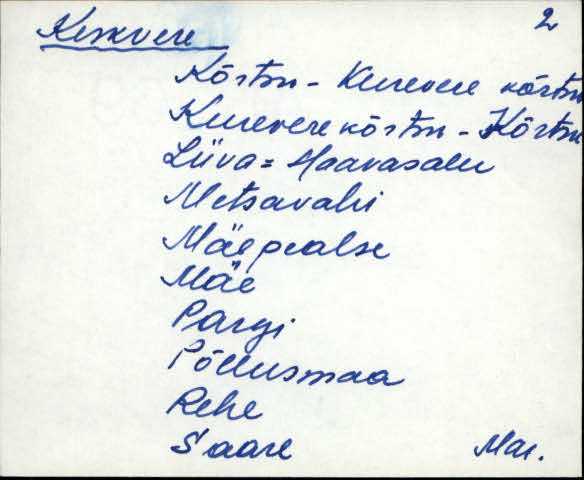 Keskvere 2
Kõrtsu - Kurevere kõrtsu
Kureverekõrtsu - Kõrtsu
Liiva = Haavasalu
Metsavahi
Mäepealse
Mäe
Pargi
Põllusmaa
Rehe
Saare Mar.